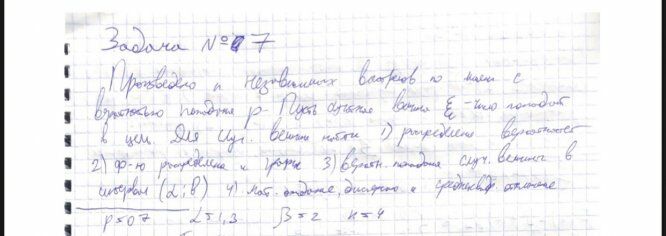 Задача №7
Произведено n независимых выстрелов по мишени с
вероятностью попадания p. Пусть случайная величина ξ - число попаданий
в цель. Для случ. величины найти 1) распределение вероятностей
2) ф-ю распределения и график 3) вероятн. попадания случ. величины в
интервал (α; β) 4) мат. ожидание, дисперсию и среднеквадр. отклонение
p = 0 7 α = 1,3 β = 2 n = 4